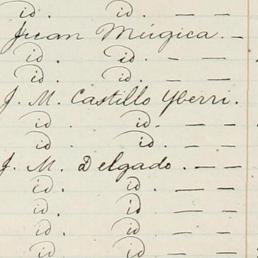 id. id. — —
Juan Múgica. —
id. id. — —
id. id. — —
J. M. Castillo Yberri.
id. id. — —
id. id. — —
J. M. Delgado. — —
id. id. — —
id. id. — —
id. id. — —
id. id. — —